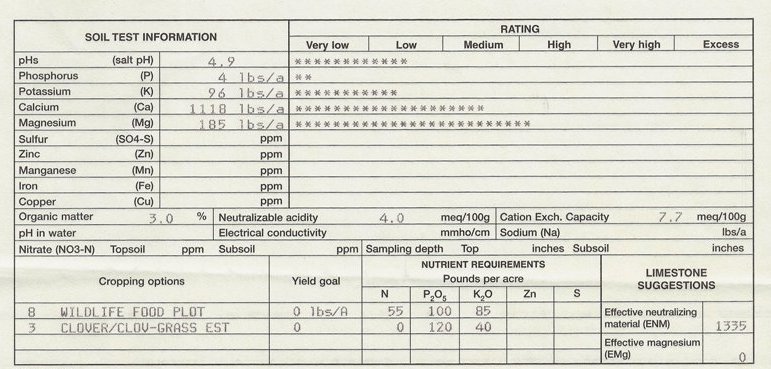 SOIL TEST INFORMATION RATING
Very low Low Medium High Very high Excess
pHs (salt pH) 4.9 ************
Phosphorus (P) 4 lbs/a **
Potassium (K) 96 lbs/a ***********
Calcium (Ca) 1118 lbs/a ********************
Magnesium (Mg) 185 lbs/a *************************
Sulfur (SO4-S) ppm
Zinc (Zn) ppm
Manganese (Mn) ppm
Iron (Fe) ppm
Copper (Cu) ppm
Organic matter 3.0 % Neutralizable acidity 4.0 meq/100g Cation Exch. Capacity 7.7 meq/100g
pH in water Electrical conductivity mmho/cm Sodium (Na) lbs/a
Nitrate (NO3-N) Topsoil ppm Subsoil ppm Sampling depth Top inches Subsoil inches
Cropping options Yield goal NUTRIENT REQUIREMENTS LIMESTONE SUGGESTIONS
Pounds per acre
N P₂O₅ K₂O Zn S
8 WILDLIFE FOOD PLOT 0 lbs/A 55 100 85 Effective neutralizing material (ENM) 1335
3 CLOVER/CLOV-GRASS EST 0 0 120 40
Effective magnesium (EMg) 0